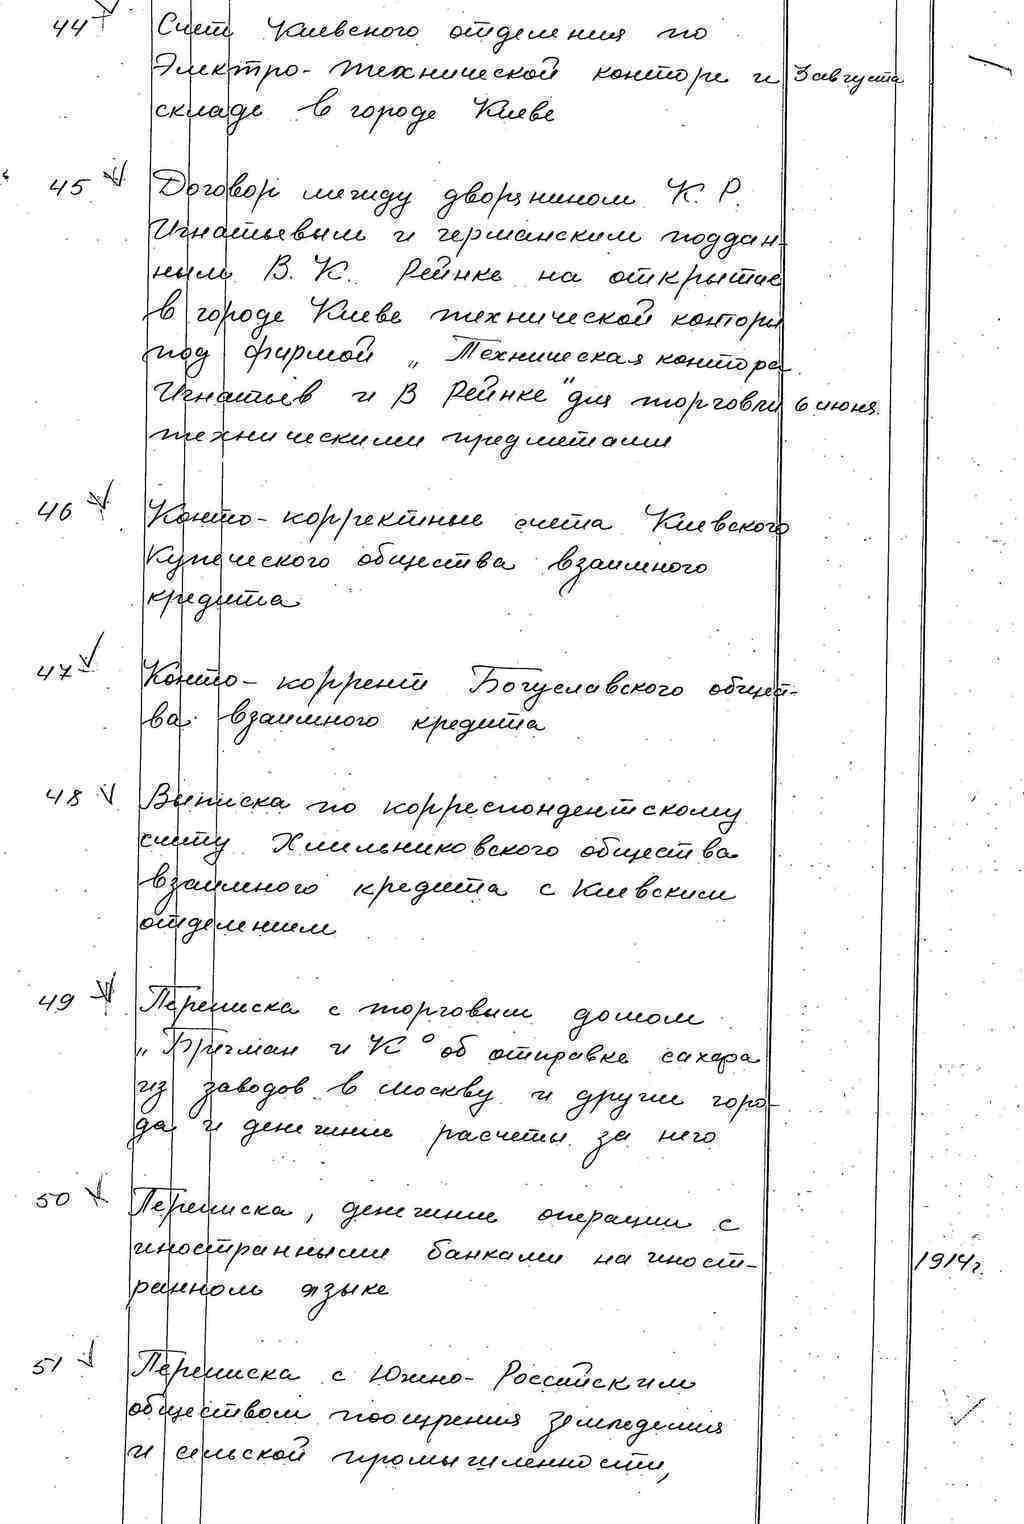 44 Счет Киевского отделения по
Электро-технической конторе и 3 августа
складе в городе Киеве
45 Договор между дворянином К. Р.
Игнатьевым и германским поддан-
ным В. К. Рейнке на открытие
в городе Киеве технической конторы
под фирмой „Техническая контора
Игнатьев и В Рейнке" для торговли 6 июня
техническими предметами
46 Конто-корректные счета Киевского
Купеческого общества взаимного
кредита
47 Конто-коррент Богуславского общест-
ва взаимного кредита
48 Выписка по корреспондентскому
счету Хмельниковского общества
взаимного кредита с Киевским
отделением
49 Переписка с торговым домом
„Бричман и К° об отправке сахара
из заводов в Москву и другие горо-
да и денежные расчеты за него
50 Переписка, денежные операции с
иностранными банками на иност- 1914г.
ранном языке
51 Переписка с Южно-Российским
обществом поощрения земледелия
и сельской промышленности,